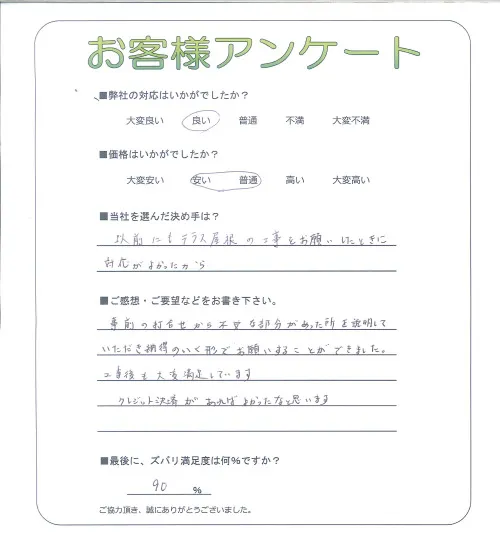 お客様アンケート
■弊社の対応はいかがでしたか？
大変良い 良い 普通 不満 大変不満
■価格はいかがでしたか？
大変安い 安い 普通 高い 大変高い
■当社を選んだ決め手は？
以前にもテラス屋根の工事をお願いしたときに
対応がよかったから
■ご感想・ご要望などをお書き下さい。
事前の打合せから不安な部分があった所を説明して
いただき納得のいく形でお願いすることができました。
工事後も大変満足しています
クレジット決済があればよかったなと思います
■最後に、ズバリ満足度は何%ですか？
90 %
ご協力頂き、誠にありがとうございました。